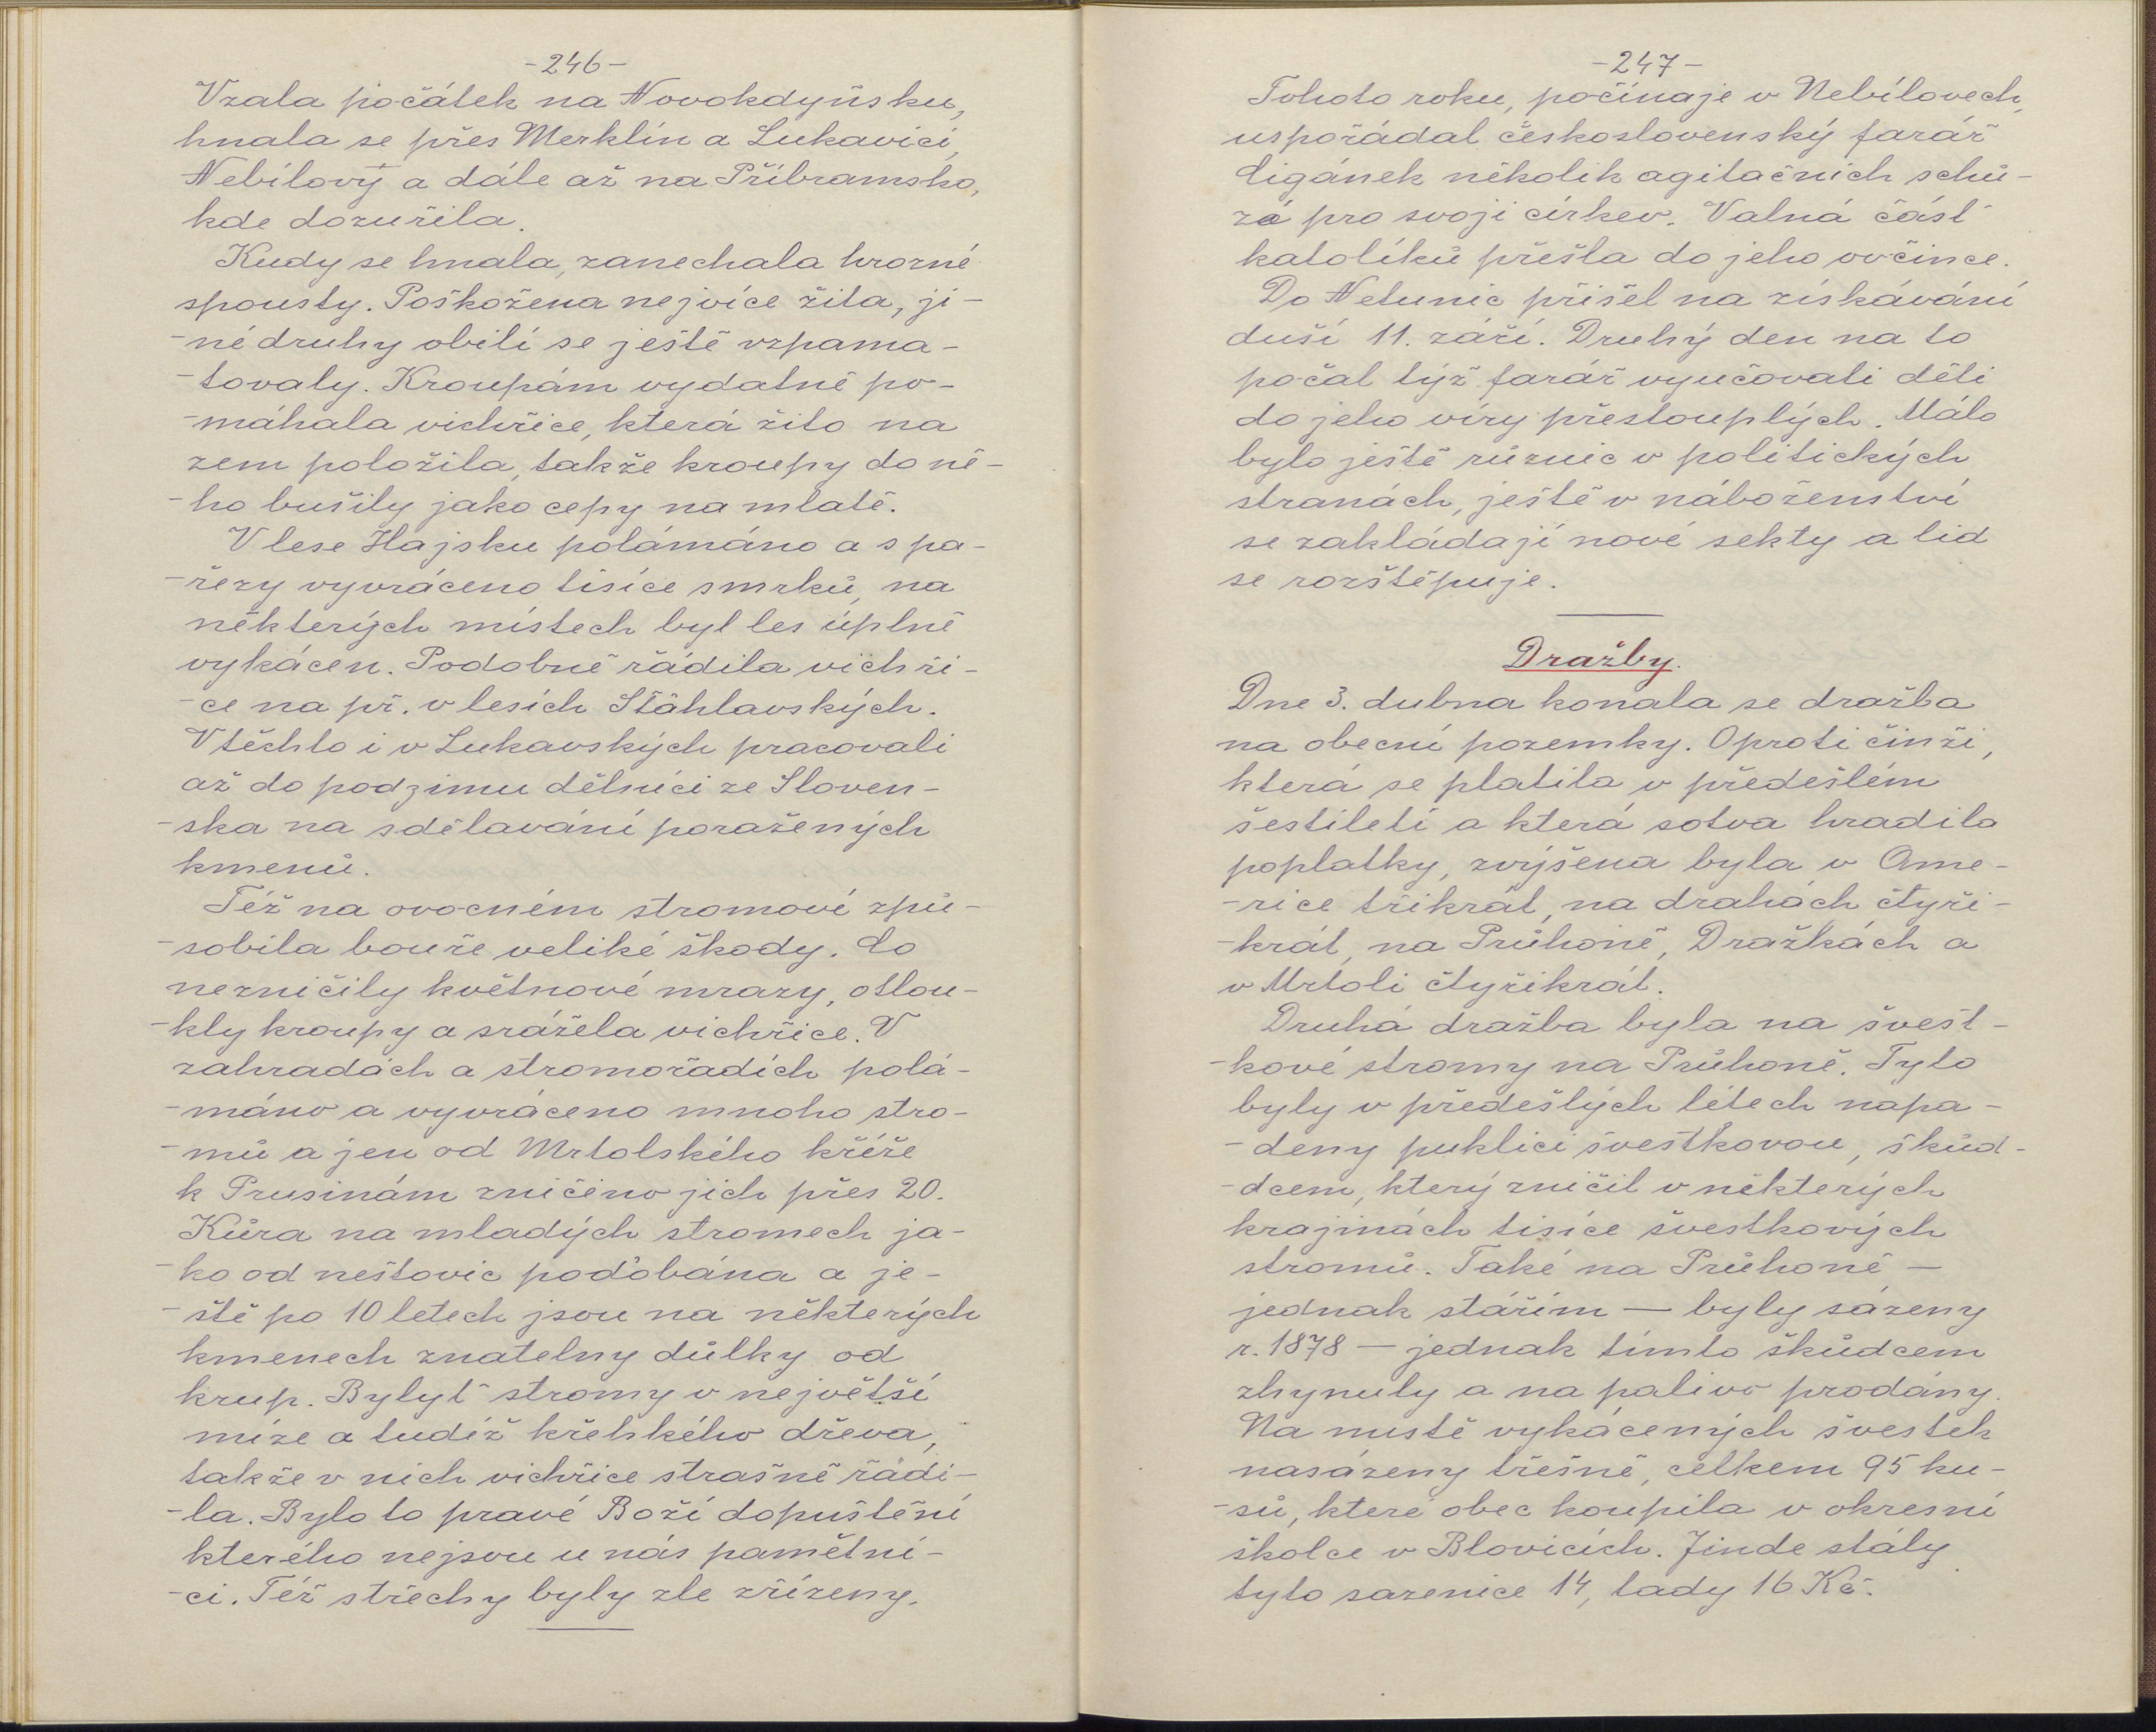 -246-
Vzala počátek na Novokdyňsku,
hnala se přes Merklín a Lukavici,
Nebílový a dále až na Příbramsko,
kde dozuřila.
Kudy se hnala, zanechala hrozné
spousty. Poškožena nejvíce žita, ji-
-né druhy obilí se ještě vzpama-
-tovaly. Kroupám vydatně po-
-máhala vichřice, která žito na
zem položila, takže kroupy do ně-
-ho bušily jako cepy na mlatě.
V lese Hájsku polámáno a s pa-
-řezy vyvráceno tisíce smrků, na
některých místech byl les úplně
vykácen. Podobně řádila vichři-
-ce na př. v lesích Šťáhlavských.
V těchto i v Lukavských pracovali
až do podzimu dělníci ze Sloven-
-ska na sdělávání poražených
kmenů.
Též na ovocném stromoví způ-
-sobila bouře veliké škody. Co
nezničily květnové mrazy, otlou-
-kly kroupy a srážela vichřice. V
zahradách a stromořadích polá-
-máno a vyvráceno mnoho stro-
-mů a jen od Mrtolského kříže
k Prusinám zničeno jich přes 20.
Kůra na mladých stromech ja-
-ko od neštovic poďobána a je-
-ště po 10 letech jsou na některých
kmenech znatelny důlky od
krup. Bylyť stromy v největší
míze a tudíž křehkého dřeva,
takže v nich vichřice strašně řádi-
-la. Bylo to pravé Boží dopuštění
kterého nejsou u nás pamětní-
-ci. Též střechy byly zle zřízeny.
-247-
Tohoto roku, počínaje v Nebílovech,
uspořádal československý farář
Cigánek několik agitačních schů-
zá pro svoji církev. Valná část
katolíků přešla do jeho ovčince.
Do Netunic přišel na získávání
duší 11. září. Druhý den na to
počal týž farář vyučovati děti
do jeho víry přestouplých. Málo
bylo ještě různic v politických
stranách, ještě v náboženství
se zakládají nové sekty a lid
se rozštěpuje.
Dražby.
Dne 3. dubna konala se dražba
na obecní pozemky. Oproti činži,
která se platila v předešlém
šestiletí a která sotva hradila
poplatky, zvýšena byla v Ame-
-rice třikrát, na drahách čtyři-
-krát, na Průhoně, Dražkách a
v Mrtoli čtyřikrát.
Druhá dražba byla na švest-
-kové stromy na Průhoně. Tyto
byly v předešlých létech napa-
-deny puklicí švestkovou, škůd-
-dcem, který zničil v některých
krajinách tisíce švestkových
stromů. Také na Průhoně -
jednak stářím — byly sázeny
r. 1878 — jednak tímto škůdcem
zhynuly a na palivo prodány.
Na místě vykácených švestek
nasázeny třešně, celkem 95 ku-
-sů, které obec koupila v okresní
školce v Blovicích. Jinde stály
tyto sazenice 14, tady 16 Kč.